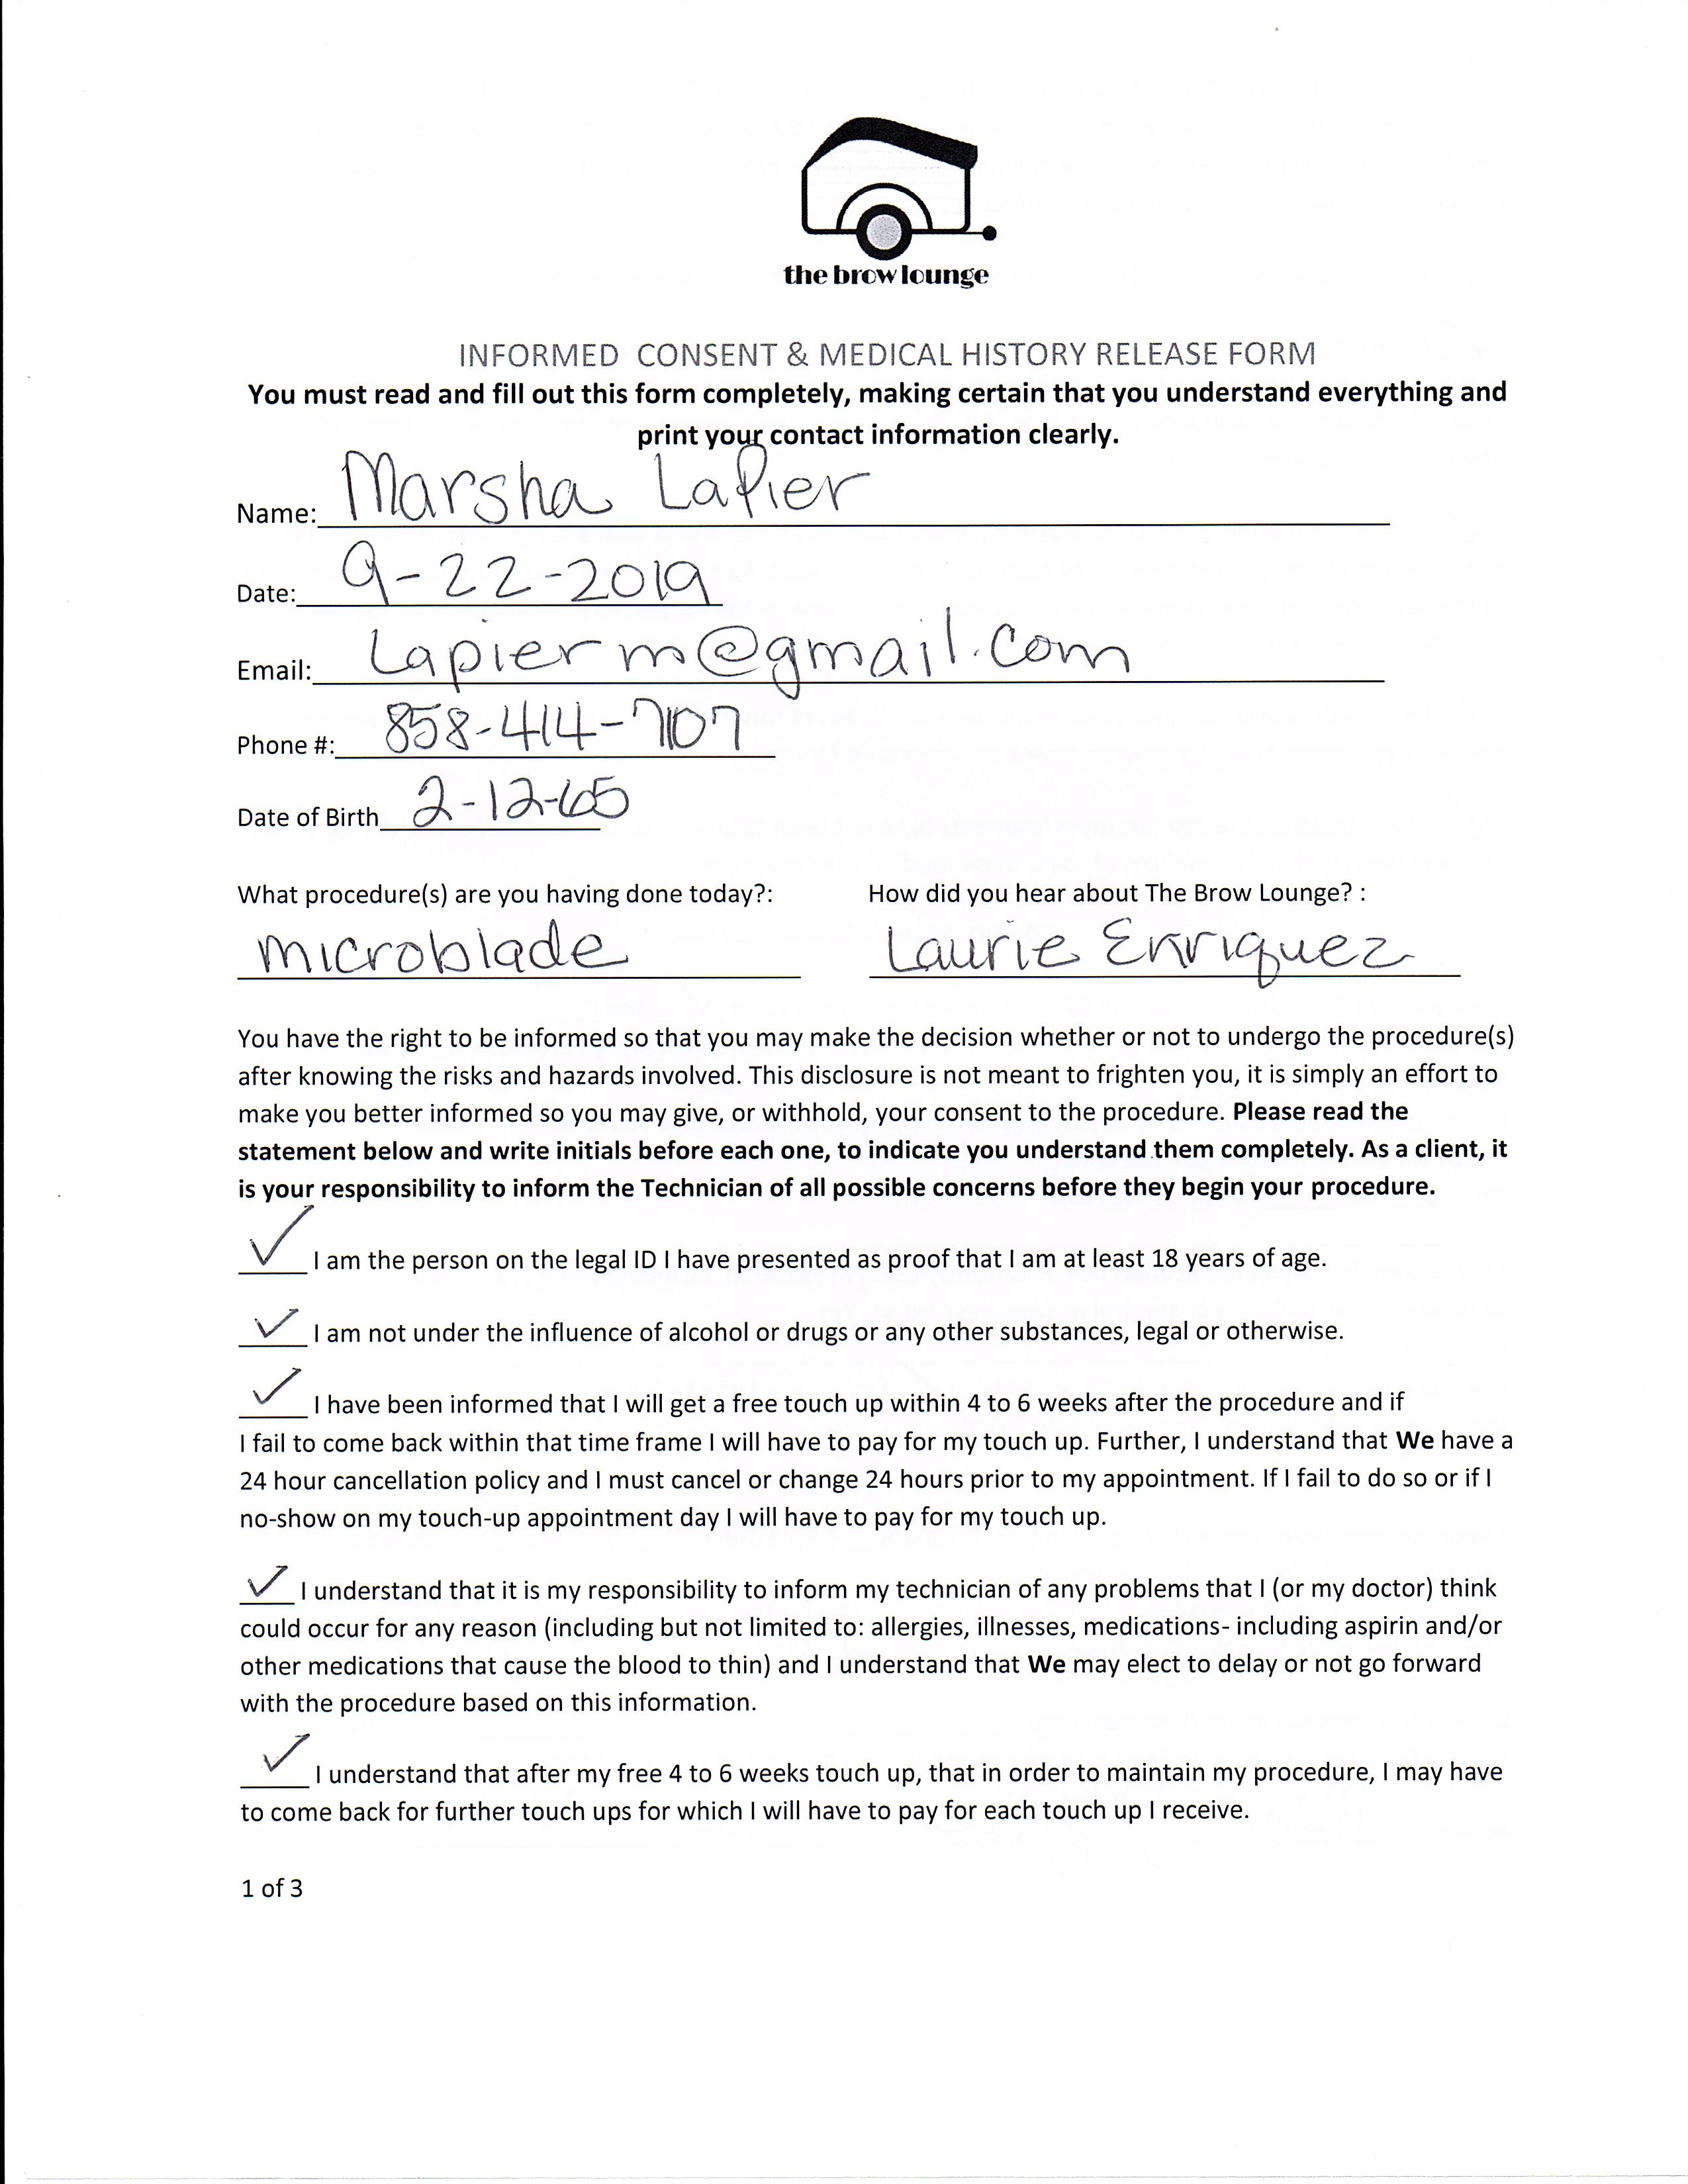 the brow lounge
INFORMED CONSENT & MEDICAL HISTORY RELEASE FORM
You must read and fill out this form completely, making certain that you understand everything and
print your contact information clearly.
Name: Marsha LaPier
Date: 9-22-2019
Email: Lapierm@gmail.com
Phone #: 858-414-7107
Date of Birth 2-12-65
What procedure(s) are you having done today?: How did you hear about The Brow Lounge? :
microblade Laurie Enriquez
You have the right to be informed so that you may make the decision whether or not to undergo the procedure(s)
after knowing the risks and hazards involved. This disclosure is not meant to frighten you, it is simply an effort to
make you better informed so you may give, or withhold, your consent to the procedure. Please read the
statement below and write initials before each one, to indicate you understand them completely. As a client, it
is your responsibility to inform the Technician of all possible concerns before they begin your procedure.
✓ I am the person on the legal ID I have presented as proof that I am at least 18 years of age.
✓ I am not under the influence of alcohol or drugs or any other substances, legal or otherwise.
✓ I have been informed that I will get a free touch up within 4 to 6 weeks after the procedure and if
I fail to come back within that time frame I will have to pay for my touch up. Further, I understand that We have a
24 hour cancellation policy and I must cancel or change 24 hours prior to my appointment. If I fail to do so or if I
no-show on my touch-up appointment day I will have to pay for my touch up.
✓ I understand that it is my responsibility to inform my technician of any problems that I (or my doctor) think
could occur for any reason (including but not limited to: allergies, illnesses, medications- including aspirin and/or
other medications that cause the blood to thin) and I understand that We may elect to delay or not go forward
with the procedure based on this information.
✓ I understand that after my free 4 to 6 weeks touch up, that in order to maintain my procedure, I may have
to come back for further touch ups for which I will have to pay for each touch up I receive.
1 of 3